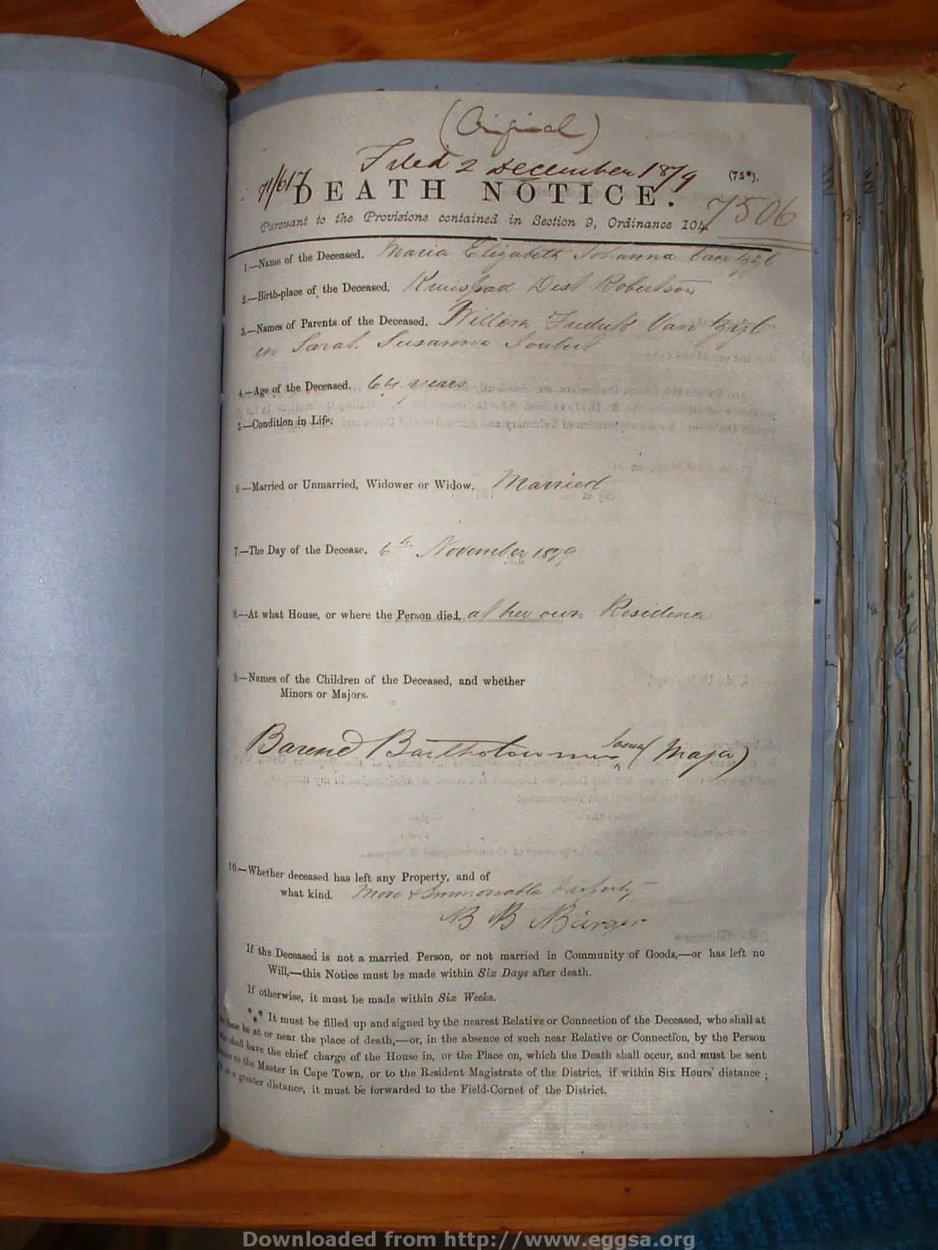 (Original)
Filed 2 December 1879
71/617 (75*).
DEATH NOTICE. 7506
Pursuant to the Provisions contained in Section 9, Ordinance 104.
1.—Name of the Deceased. Maria Elizabeth Johanna Van Zijl
2.—Birth-place of the Deceased. Dist Robertson
3.—Names of Parents of the Deceased. Willem Fredrik Van Zijl
en Sarah Susanna Joubert
4.—Age of the Deceased. 64 years
5.—Condition in Life.
6—Married or Unmarried, Widower or Widow. Married
7.—The Day of the Decease. 6th November 1879
8.—At what House, or where the Person died. at her own Residence
9.—Names of the Children of the Deceased, and whether
Minors or Majors.
Barend Bartholomeus (Major)
10.—Whether deceased has left any Property, and of
what kind. Move & Immoveable
B B Burger
If the Deceased is not a married Person, or not married in Community of Goods,—or has left no
Will,—this Notice must be made within Six Days after death.
If otherwise, it must be made within Six Weeks.
*** It must be filled up and signed by the nearest Relative or Connection of the Deceased, who shall at
be at or near the place of death,—or, in the absence of such near Relative or Connection, by the Person
shall have the chief charge of the House in, or the Place on, which the Death shall occur, and must be sent
to the Master in Cape Town, or to the Resident Magistrate of the District, if within Six Hours' distance ;
at a greater distance, it must be forwarded to the Field-Cornet of the District.
Downloaded from http://www.eggsa.org